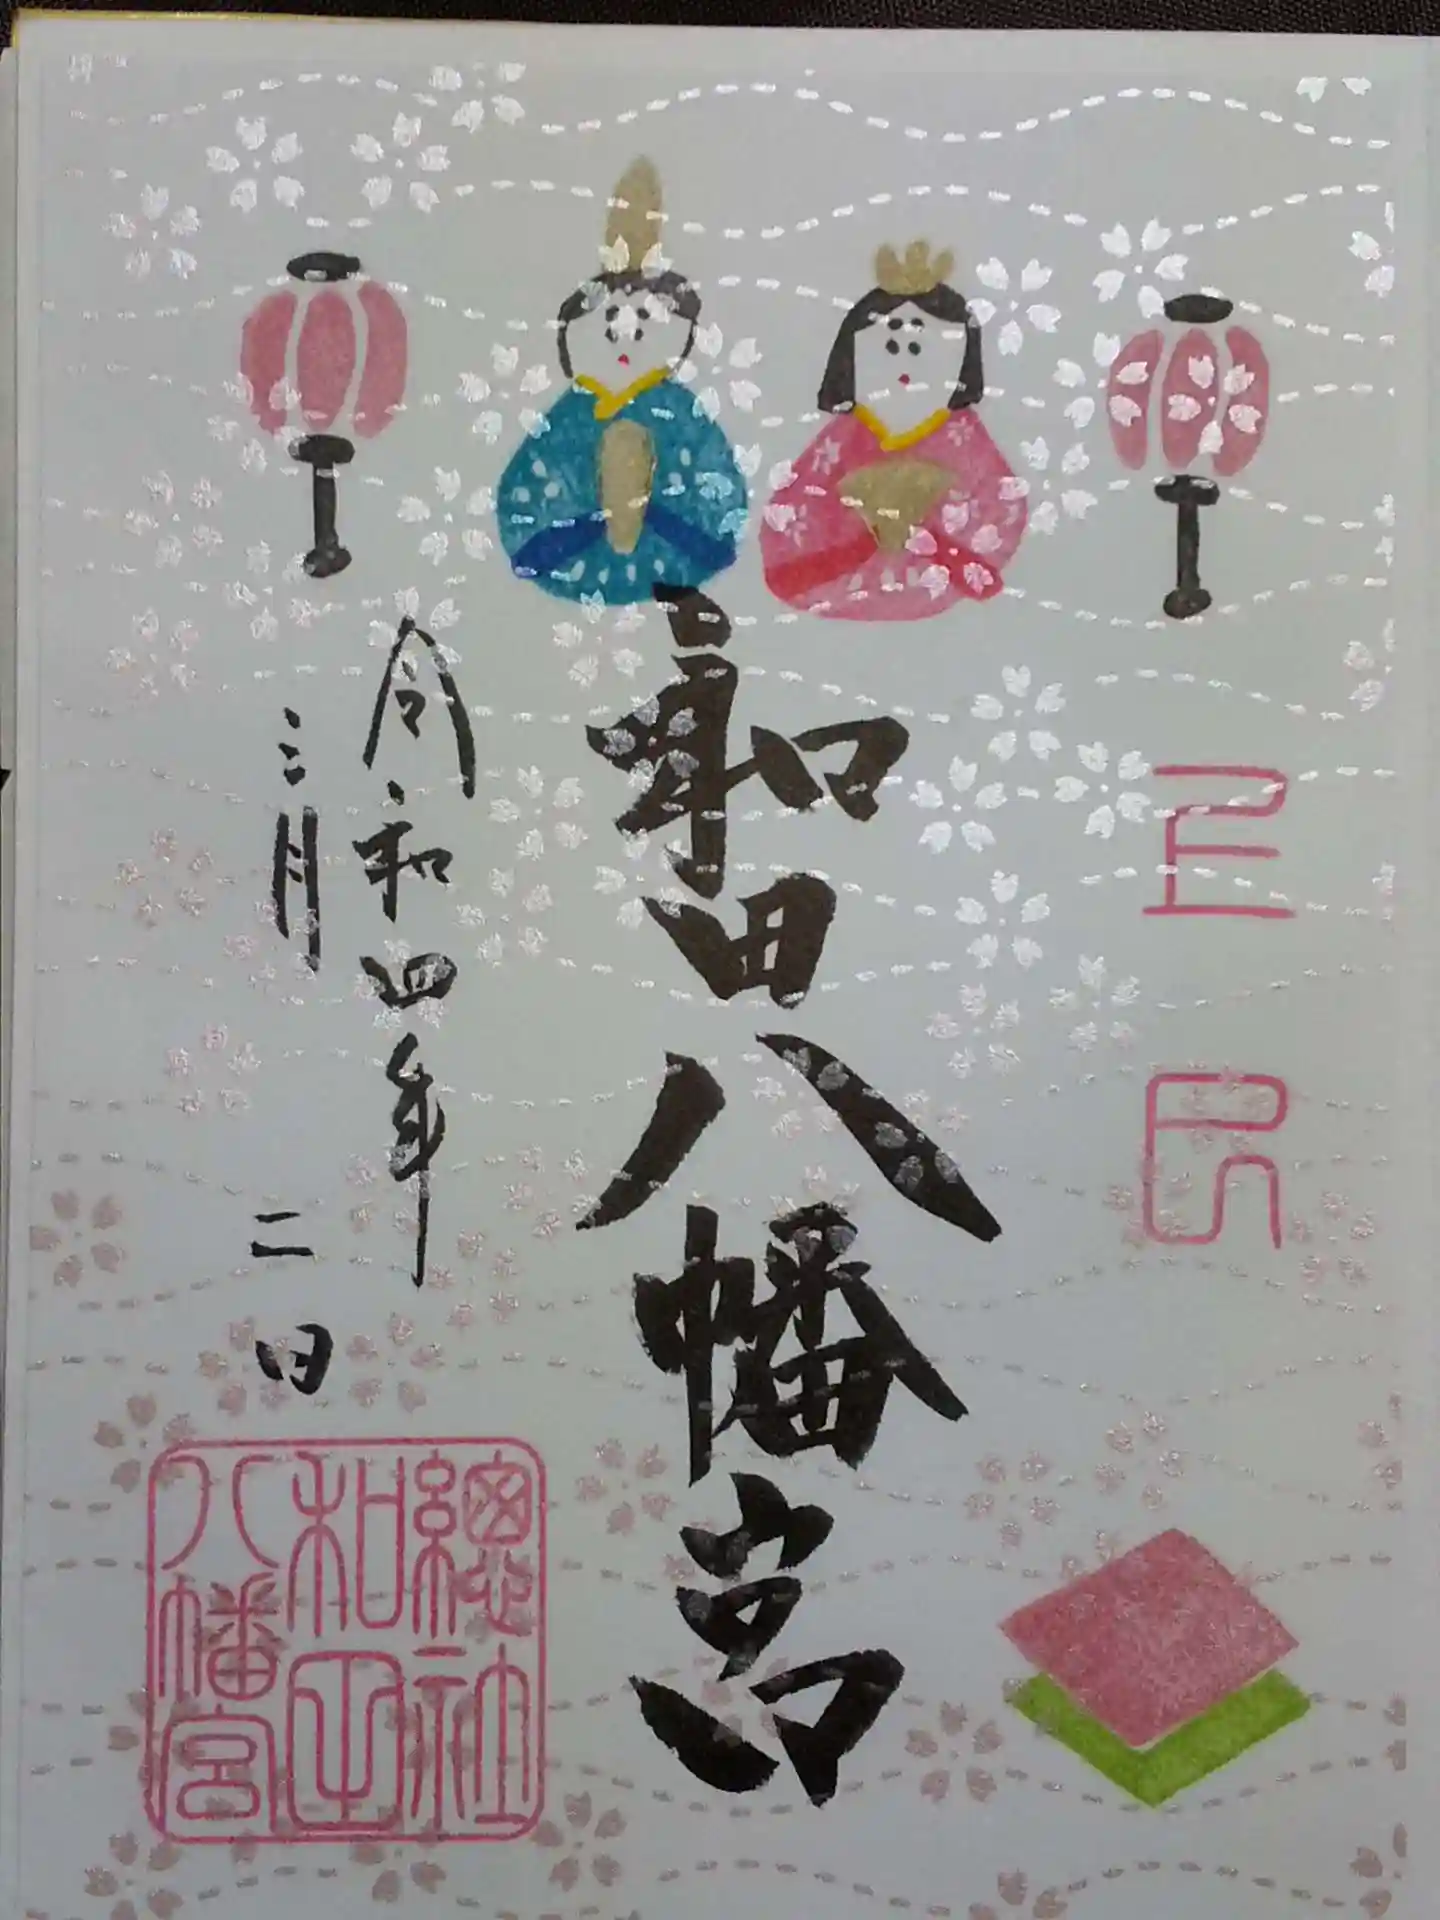 上巳
和田八幡宮
令和四年
三月二日
總社
和田
八幡宮